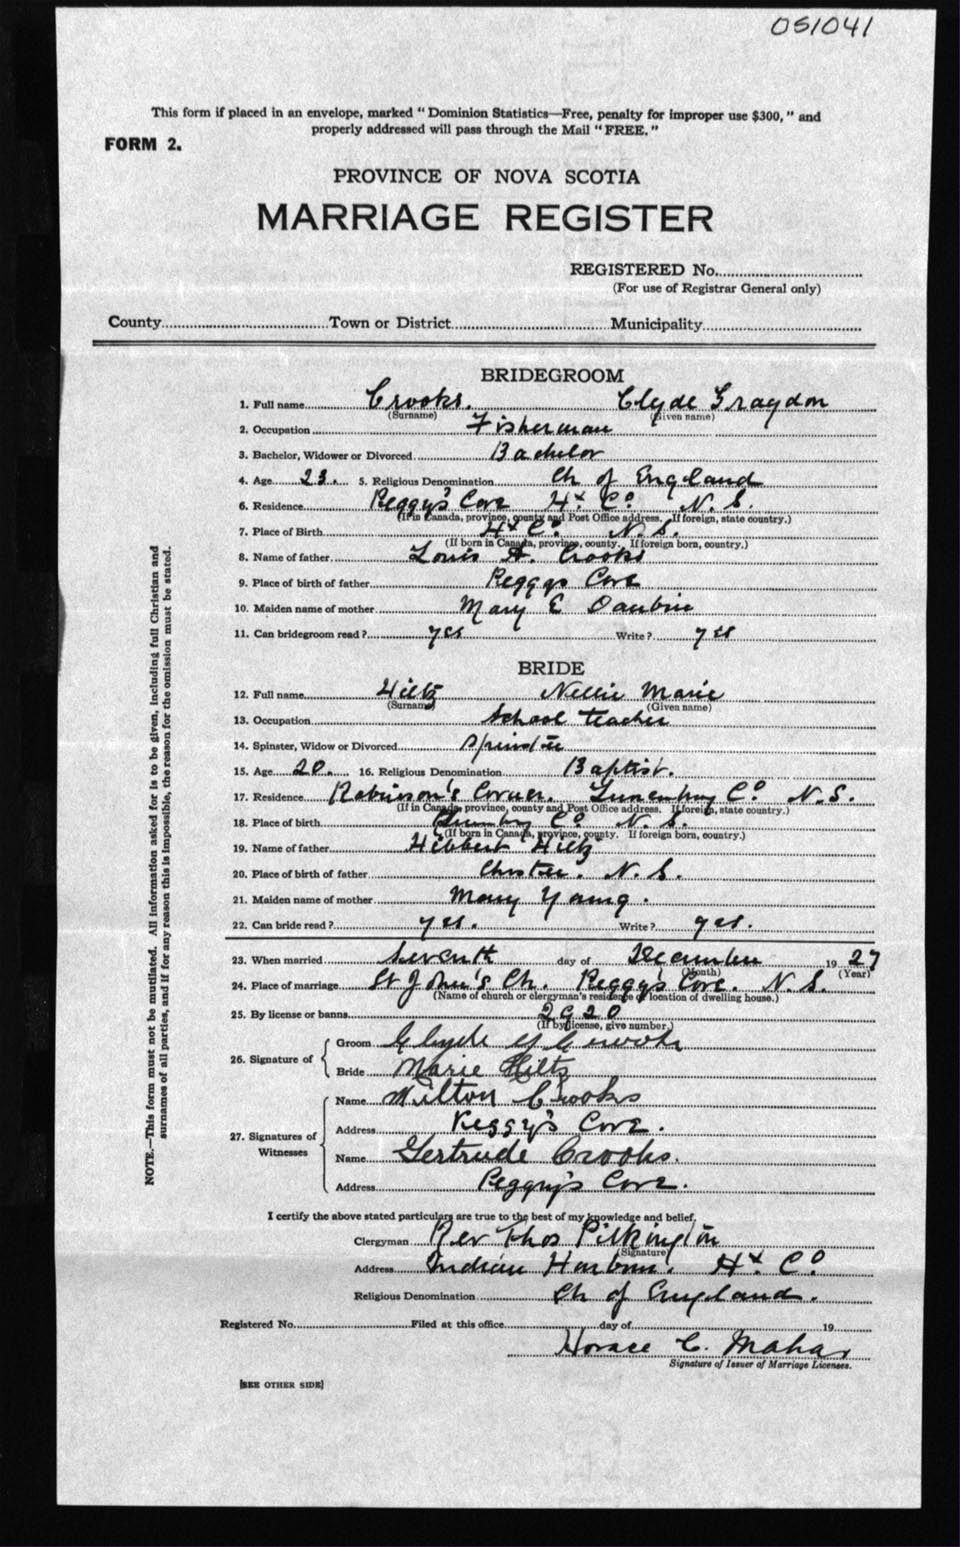 051041
This form if placed in an envelope, marked "Dominion Statistics—Free, penalty for improper use $300," and
properly addressed will pass through the Mail "FREE."
FORM 2.
PROVINCE OF NOVA SCOTIA
MARRIAGE REGISTER
REGISTERED No.
(For use of Registrar General only)
County Town or District Municipality
BRIDEGROOM
1. Full name Crooks. Clyde Graydon
(Surname) (Given name)
2. Occupation Fisherman
3. Bachelor, Widower or Divorced Bachelor
4. Age 23. 5. Religious Denomination Ch of England
6. Residence Peggy's Cove Hx Co N. S.
(If in Canada, province, county and Post Office address. If foreign, state country.)
7. Place of Birth Hx Co. N. S.
(If born in Canada, province, county. If foreign born, country.)
8. Name of father Louis A. Crooks
9. Place of birth of father Peggys Cove
10. Maiden name of mother Mary E Daubin
11. Can bridegroom read? yes Write? yes
BRIDE
12. Full name Hiltz Nellie Marie
(Surname) (Given name)
13. Occupation School teacher
14. Spinster, Widow or Divorced Spinster
15. Age 20. 16. Religious Denomination Baptist.
17. Residence Robinson's Corner. Lunenburg Co N.S.
(If in Canada, province, county and Post Office address. If foreign, state country.)
18. Place of birth Co N. S.
(If born in Canada, province, county. If foreign born, country.)
19. Name of father Hibbert Hiltz
20. Place of birth of father Chester. N. S.
21. Maiden name of mother Mary Young.
22. Can bride read? yes. Write? yes.
23. When married Seventh day of December 19 27
(Month) (Year)
24. Place of marriage St John's Ch. Peggy's Cove. N. S.
(Name of church or clergyman's residence or location of dwelling house.)
25. By license or banns 2920
(If by license, give number.)
26. Signature of Groom Clyde G Crooks
Bride Marie Hiltz
27. Signatures of Witnesses Name Wilton Crooks
Address Peggy's Cove.
Name Gertrude Crooks.
Address Peggy's Cove.
I certify the above stated particulars are true to the best of my knowledge and belief.
Clergyman Rev Thos Pilkington
(Signature)
Address Indian Harbour. Hx. Co.
Religious Denomination Ch of England.
Registered No. Filed at this office day of 19
Horace C. Mahar
Signature of Issuer of Marriage Licenses.
[SEE OTHER SIDE]
NOTE.—This form must not be mutilated. All information asked for is to be given, including full Christian and
surnames of all parties, and if for any reason this is impossible, the reason for the omission must be stated.